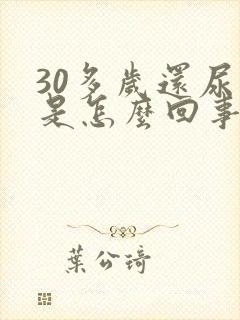 30多歲還尿
是怎麼回事
葉公琦